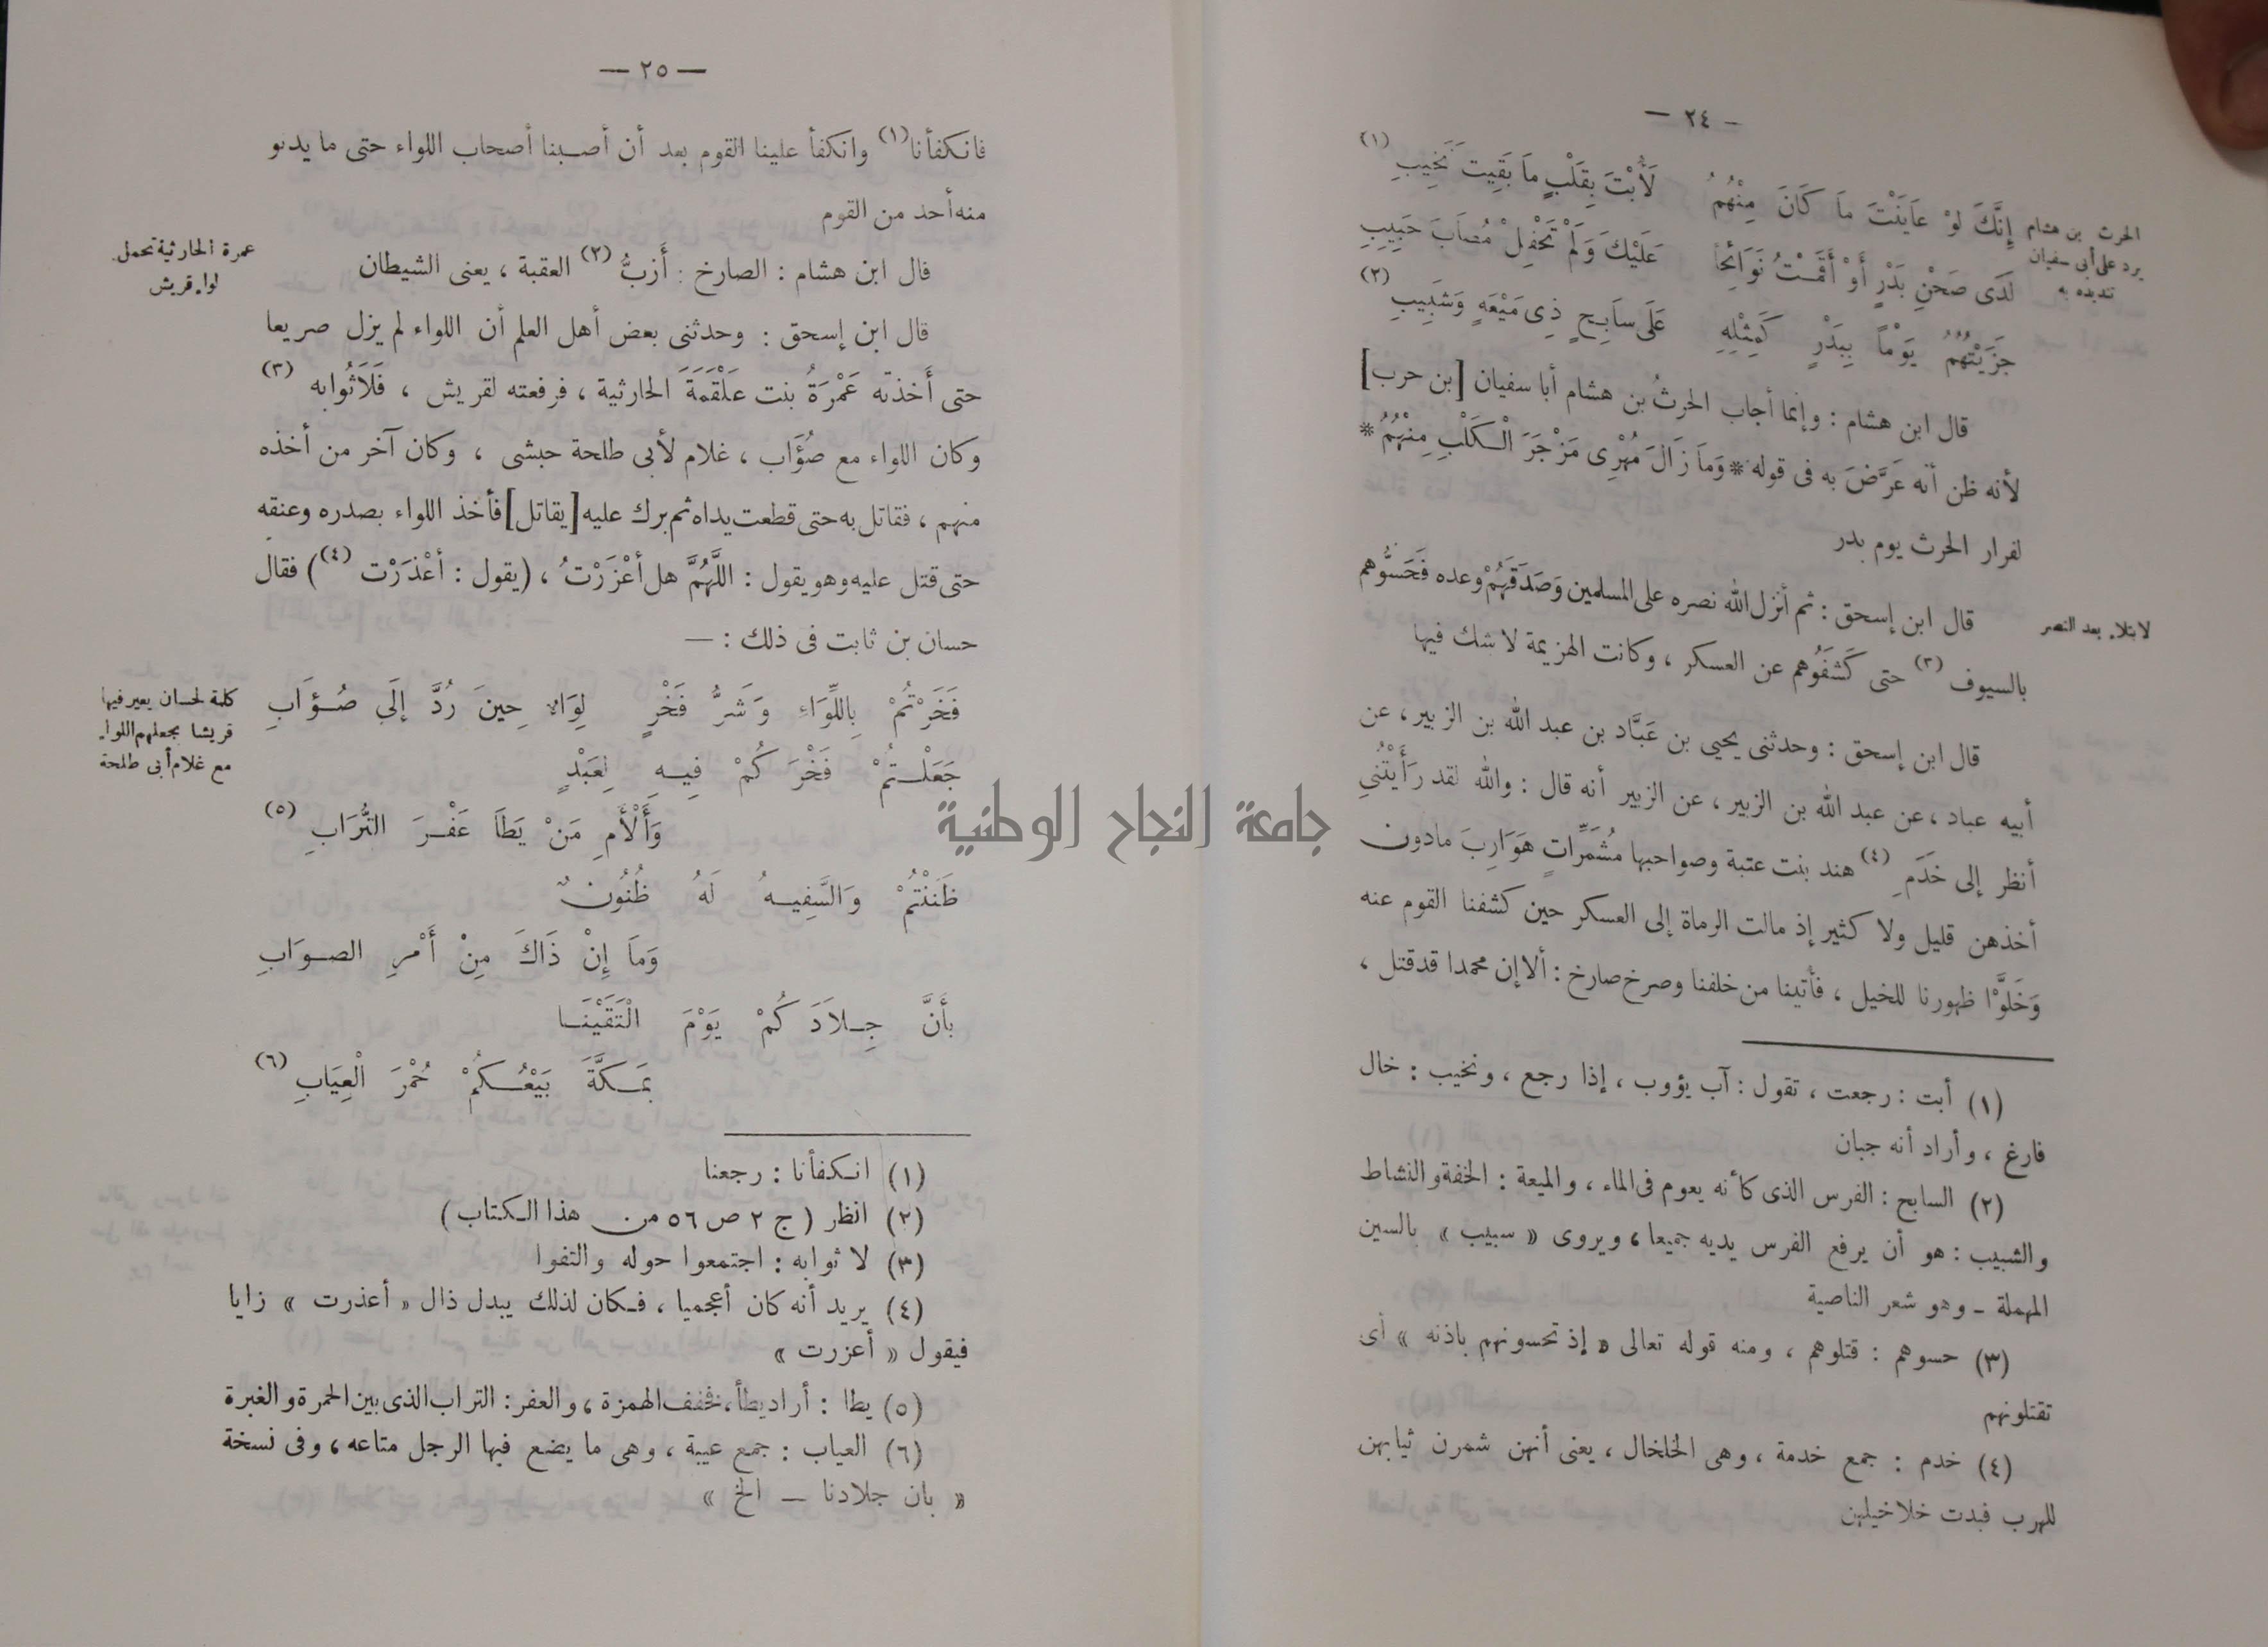 — ٢٤ —
إِنَّكَ لَوْ عَايَنْتَ مَا كَانَ مِنْهُمُ لَأُبْتَ بِقَلْبٍ مَا بَقِيتَ نَخِيبِ (١)
لَدَى صَحْنِ بَدْرٍ أَوْ أَقَمْتُ نَوَائِحًا عَلَيْكَ وَلَمْ تَحْفِلْ مُصَابَ حَبِيبِ
جَزَيْتُهُمُ يَوْمًا بِبَدْرٍ كَمِثْلِهِ عَلَى سَابِحٍ ذِى مَيْعَةٍ وَشَبِيبِ (٢)
الحرث بن هشام
يرد على أبى سفيان
تنديده به
قال ابن هشام : وإنما أجاب الحرثُ بن هشام أبا سفيان [بن حرب]
لأنه ظن أنه عَرَّضَ به فى قوله * وَمَا زَالَ مُهْرِى مَزْجَرَ الْكَلْبِ مِنْهُمُ *
لفرار الحرث يوم بدر
قال ابن إسحق : ثم أنزل الله نصره على المسلمين وَصَدَقَهُمْ وعده فَحَسُّوهم
لابتلاء بعد النصر
بالسيوف (٣) حتى كَشَفُوهم عن العسكر ، وكانت الهزيمة لا شك فيها
قال ابن إسحق : وحدثنى يحيى بن عَبَّاد بن عبد الله بن الزبير ، عن
أبيه عباد ، عن عبد الله بن الزبير ، عن الزبير أنه قال : والله لقد رَأَيْتُنِى
أنظر إلى خَدَمِ (٤) هند بنت عتبة وصواحبها مُشَمِّرَاتٍ هَوَارِبَ مادون
أخذهن قليل ولا كثير إذ مالت الرماة إلى العسكر حين كشفنا القوم عنه
وَخَلَّوْا ظهورنا للخيل ، فأُتينا من خلفنا وصرخ صارخ : ألا إن محمدا قد قتل ،
(١) أبت : رجعت ، تقول : آب يؤوب ، إذا رجع ، ونخيب : خال
فارغ ، وأراد أنه جبان
(٢) السابح : الفرس الذى كأنه يعوم فى الماء ، والميعة : الخفة والنشاط
والشبيب : هو أن يرفع الفرس يديه جميعا ، ويروى « سبيب » بالسين
المهملة - وهو شعر الناصية
(٣) حسوهم : قتلوهم ، ومنه قوله تعالى « إذ تحسونهم باذنه » أى
تقتلونهم
(٤) خدم : جمع خدمة ، وهى الخلخال ، يعنى أنهن شمرن ثيابهن
للهرب فبدت خلاخيلهن
جامعة النجاح الوطنية
— ٢٥ —
فانكفأنا (١) وانكفأ علينا القوم بعد أن أصبنا أصحاب اللواء حتى ما يدنو
منه أحد من القوم
قال ابن هشام : الصارخ : أَزبُّ (٢) العقبة ، يعنى الشيطان
عمرة الحارثية تحمل
لواء قريش
قال ابن إسحق : وحدثنى بعض أهل العلم أن اللواء لم يزل صريعا
حتى أَخذته عَمْرَةُ بنت عَلْقَمَةَ الحارثية ، فرفعته لقريش ، فَلَاثُوا به (٣)
وكان اللواء مع صُؤَاب ، غلام لأبى طلحة حبشى ، وكان آخر من أخذه
منهم ، فقاتل به حتى قطعت يداه ثم برك عليه [يقاتل] فأخذ اللواء بصدره وعنقه
حتى قتل عليه وهو يقول : اللَّهُمَّ هل أعْزَرْتُ ، (يقول : أعْذَرْت (٤)) فقال
حسان بن ثابت فى ذلك : —
فَخَرْتُمْ بِاللِّوَاءِ وَشَرُّ فَخْرٍ لِوَاءٌ حِينَ رُدَّ إِلَى صُؤَابِ
كلمة لحسان يعير فيها
قريشا بجعلهم اللواء
مع غلام أبى طلحة
جَعَلْتُمْ فَخْرَكُمْ فِيهِ لِعَبْدٍ
وَأَلْأَمِ مَنْ يَطَا عَفْرَ التُّرَابِ (٥)
ظَنَنْتُمْ وَالسَّفِيهُ لَهُ ظُنُونٌ
وَمَا إِنْ ذَاكَ مِنْ أَمْرِ الصوَابِ
بأَنَّ جِلاَدَكُمْ يَوْمَ الْتَقَيْنَا
بمَكَّةَ بَيْعُكُمْ حُمْرَ الْعِيَابِ (٦)
(١) انكفأنا : رجعنا
(٢) انظر ( ج ٢ ص ٥٦ من هذا الكتاب )
(٣) لاثوا به : اجتمعوا حوله والتفوا
(٤) يريد أنه كان أعجميا ، فكان لذلك يبدل ذال « أعذرت » زايا
فيقول « أعزرت »
(٥) يطا : أراد يطأ ، فخفف الهمزة ، والعفر : التراب الذى بين الحمرة والغبرة
(٦) العياب : جمع عيبة ، وهى ما يضع فيها الرجل متاعه ، وفى نسخة
« بان جلادنا — الخ »